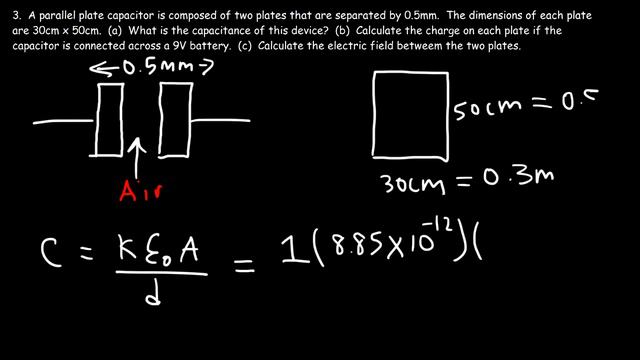 3. A parallel plate capacitor is composed of two plates that are separated by 0.5mm. The dimensions of each plate
are 30cm x 50cm. (a) What is the capacitance of this device? (b) Calculate the charge on each plate if the
capacitor is connected across a 9V battery. (c) Calculate the electric field betweem the two plates.
0.5mm
50cm = 0.5
Air
30cm = 0.3m
C = Kε₀A/d = 1(8.85×10⁻¹²)(